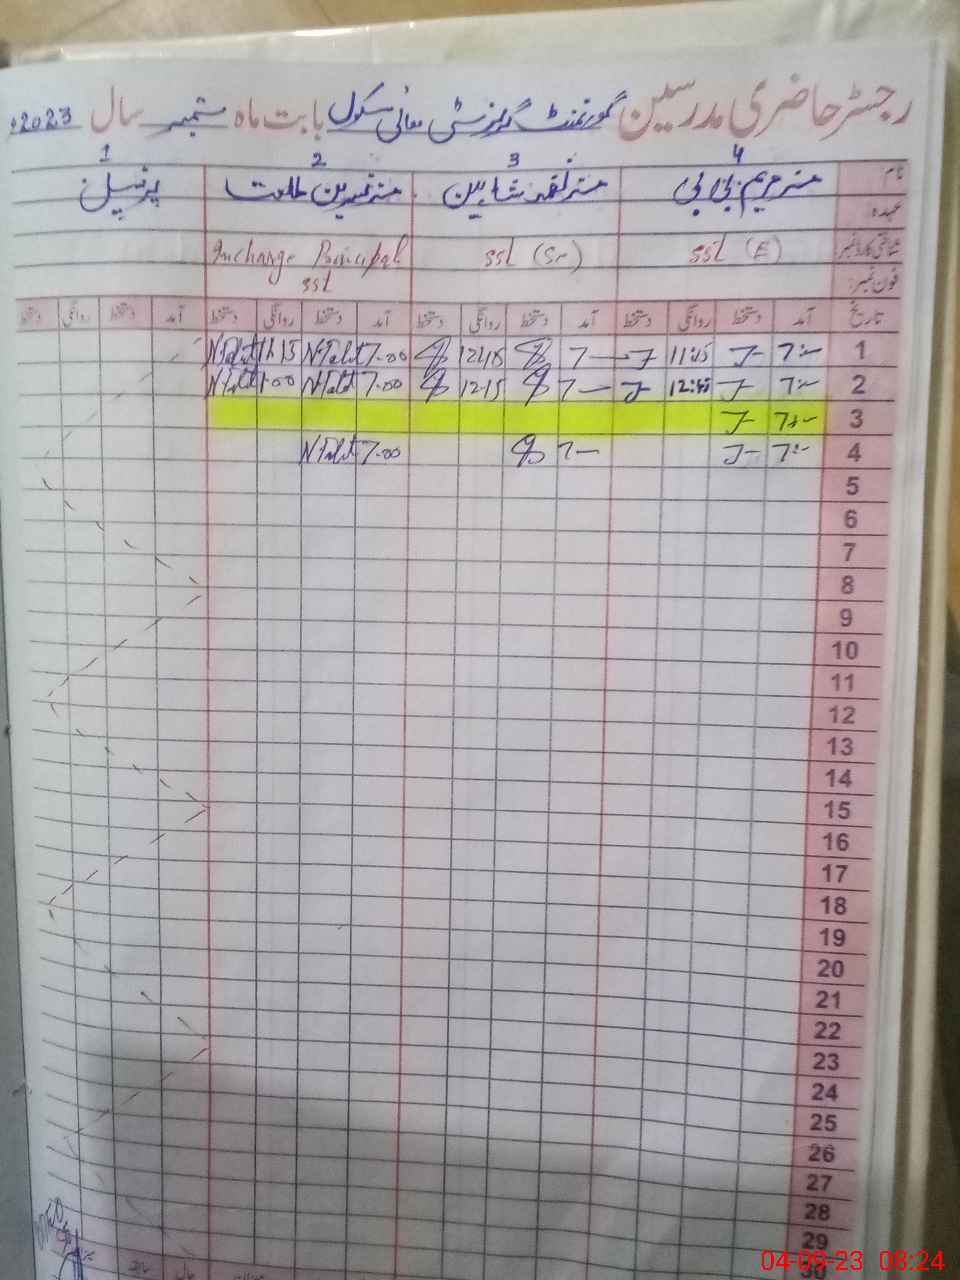 رجسٹر حاضری مدرسین گورنمنٹ گرلز سٹی ہائی سکول بابت ماہ ستمبر سال 2023ء
4 3 2 1
نام مسز مریم بی بی مسز شاہین مسز نسرین طلعت پرنسپل
عہدہ
شناختی کارڈ نمبر SSt (E) SSt (Sr) Incharge Principal
SSt
فون نمبر:
تاریخ آمد دستخط روانگی دستخط آمد دستخط روانگی دستخط آمد دستخط روانگی دستخط آمد دستخط روانگی دستخط
1 7:— 11:15 7— 12:15 7-00 N.Talat 11:15 N.Talat
2 7:— 12:15 7— 12:15 7-00 N.Talat 1:00 N.Talat
3 7:—
4 7:— 7— 7-00 N.Talat
5
6
7
8
9
10
11
12
13
14
15
16
17
18
19
20
21
22
23
24
25
26
27
28
29
30
04-09-23 08:24